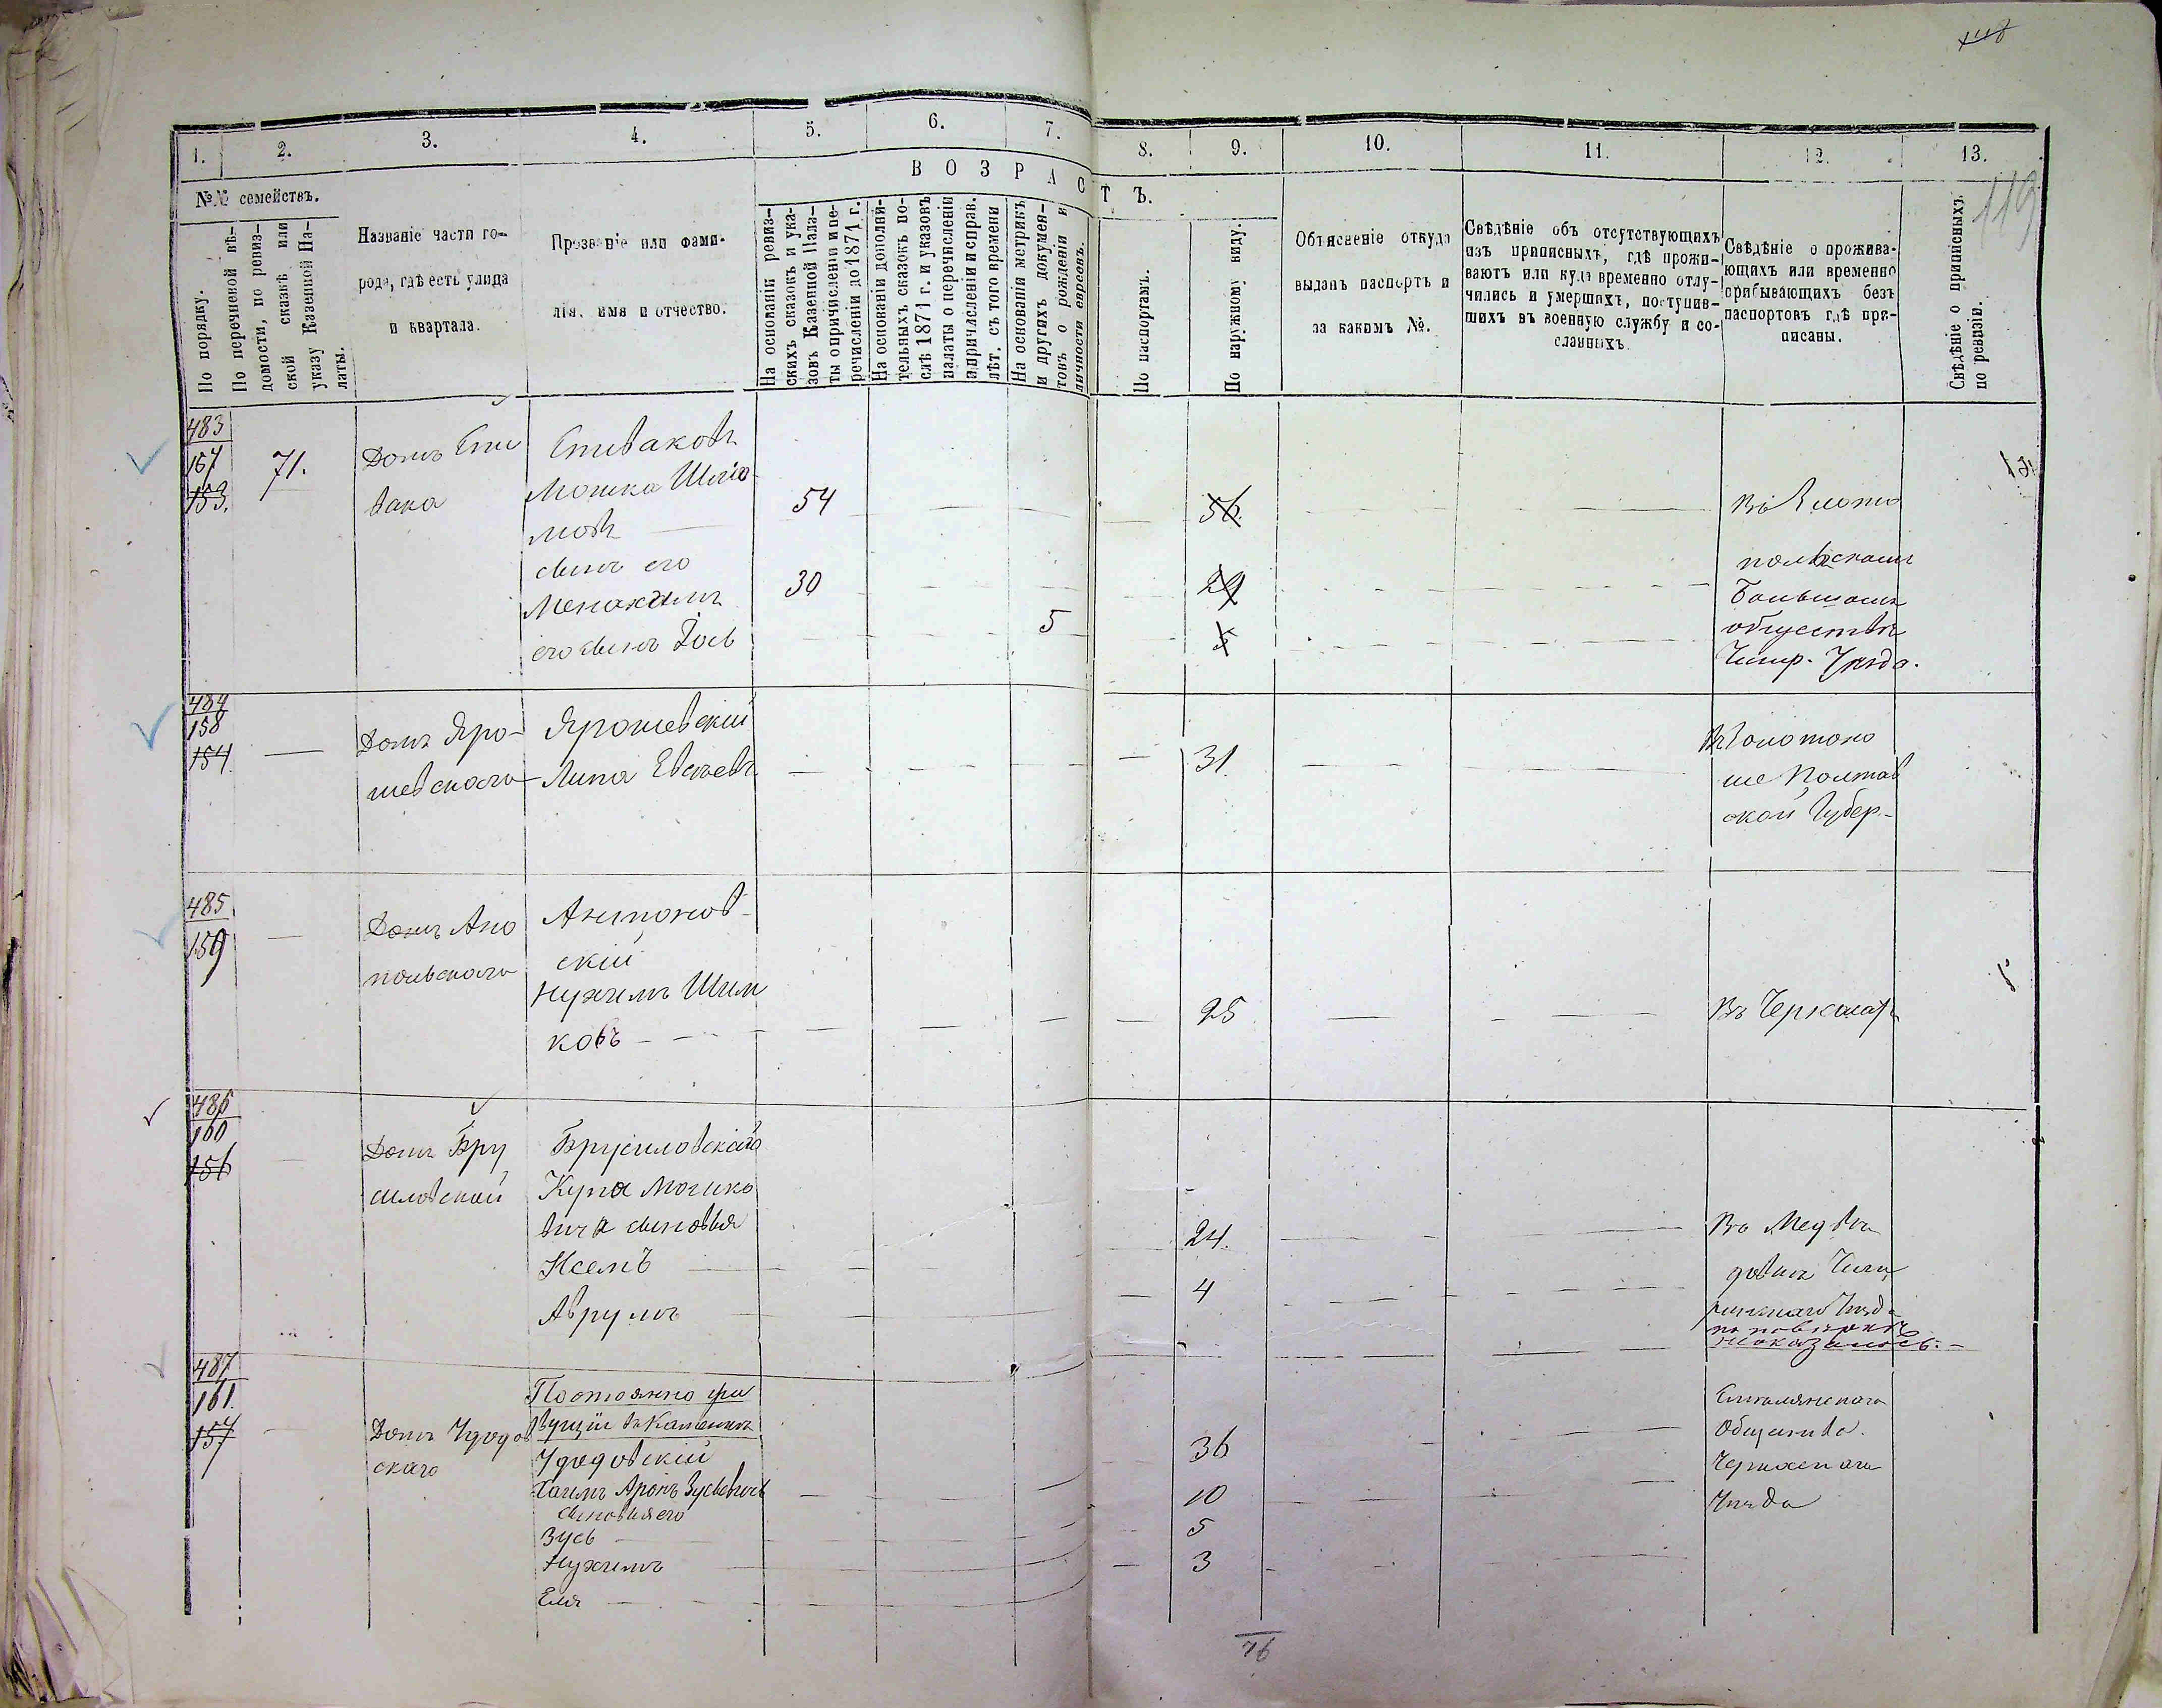 118
119
1.
2.
3.
4.
5.
6.
7.
8.
9.
10.
11.
12.
13.
№№ семействъ.
В О З Р А С Т Ъ.
По порядку.
По перечневой вѣ-
домости, по ревиз-
ской сказкѣ или
указу Казенной Па-
латы.
Названіе части го-
рода, гдѣ есть улица
и квартала.
Прозваніе или фами-
лія, имя и отчество.
На основаніи ревиз-
скихъ сказокъ и ука-
зовъ Казенной Пала-
ты о причисленіи и пе-
речисленіи до 1871 г.
На основаніи дополни-
тельныхъ сказокъ по-
слѣ 1871 г. и указовъ
палаты о перечисленіи
и причисленіи и справ.
лѣт. съ того времени
На основаніи метрикъ
и другихъ докумен-
товъ о рожденіи и
личности евреевъ.
По паспортамъ.
По наружному виду.
Объясненіе откуда
выданъ паспортъ и
за какимъ №.
Свѣдѣніе объ отсутствующихъ
изъ приписныхъ, гдѣ прожи-
ваютъ или куда временно отлу-
чились и умершихъ, поступив-
шихъ въ военную службу и со-
сланныхъ.
Свѣдѣніе о прожива-
ющихъ или временно
прибывающихъ безъ
паспортовъ гдѣ при-
писаны.
Свѣдѣніе о приписныхъ
по ревизіи.
483
157
153.
71.
Домъ Спи
вака
Спиваковъ
Мошка Шлио-
мовъ
54
56.
сынъ его
Менахемъ
30
29
его сынъ Іось
5
5
Въ Злото
польскомъ
Большомъ
обществѣ
Чигир. Уѣзда.
484
158
154.
Домъ Яро-
шевскаго
Ярошевскій
Липа Евсѣевъ
31.
Золотоно
ше Полтав
ской Губер-
485.
159
Домъ Ано
польскаго
Антонов-
скій
Нухимъ Шим
ковъ
25
Въ Черкасахъ
486
160
156
Домъ Бру
силовскій
Брусиловскаго
Купа Мошко
вича сыновья
Нсемъ
24.
Аврумъ
4
Въ Медвѣ
довкѣ Чиги
ринскаго Уѣзда
по повѣркѣ
не оказалось.
487
161.
157
Домъ Удодов
скаго
Постоянно жи
вущіи въ Каменкѣ
Удодовскій
Хаимъ Аронъ Зусьевичъ
36
сыновья его
Зусь
10
Нухимъ
5
Еля
3
Смѣлянскаго
Общества.
Черкаскаго
Уѣзда
76